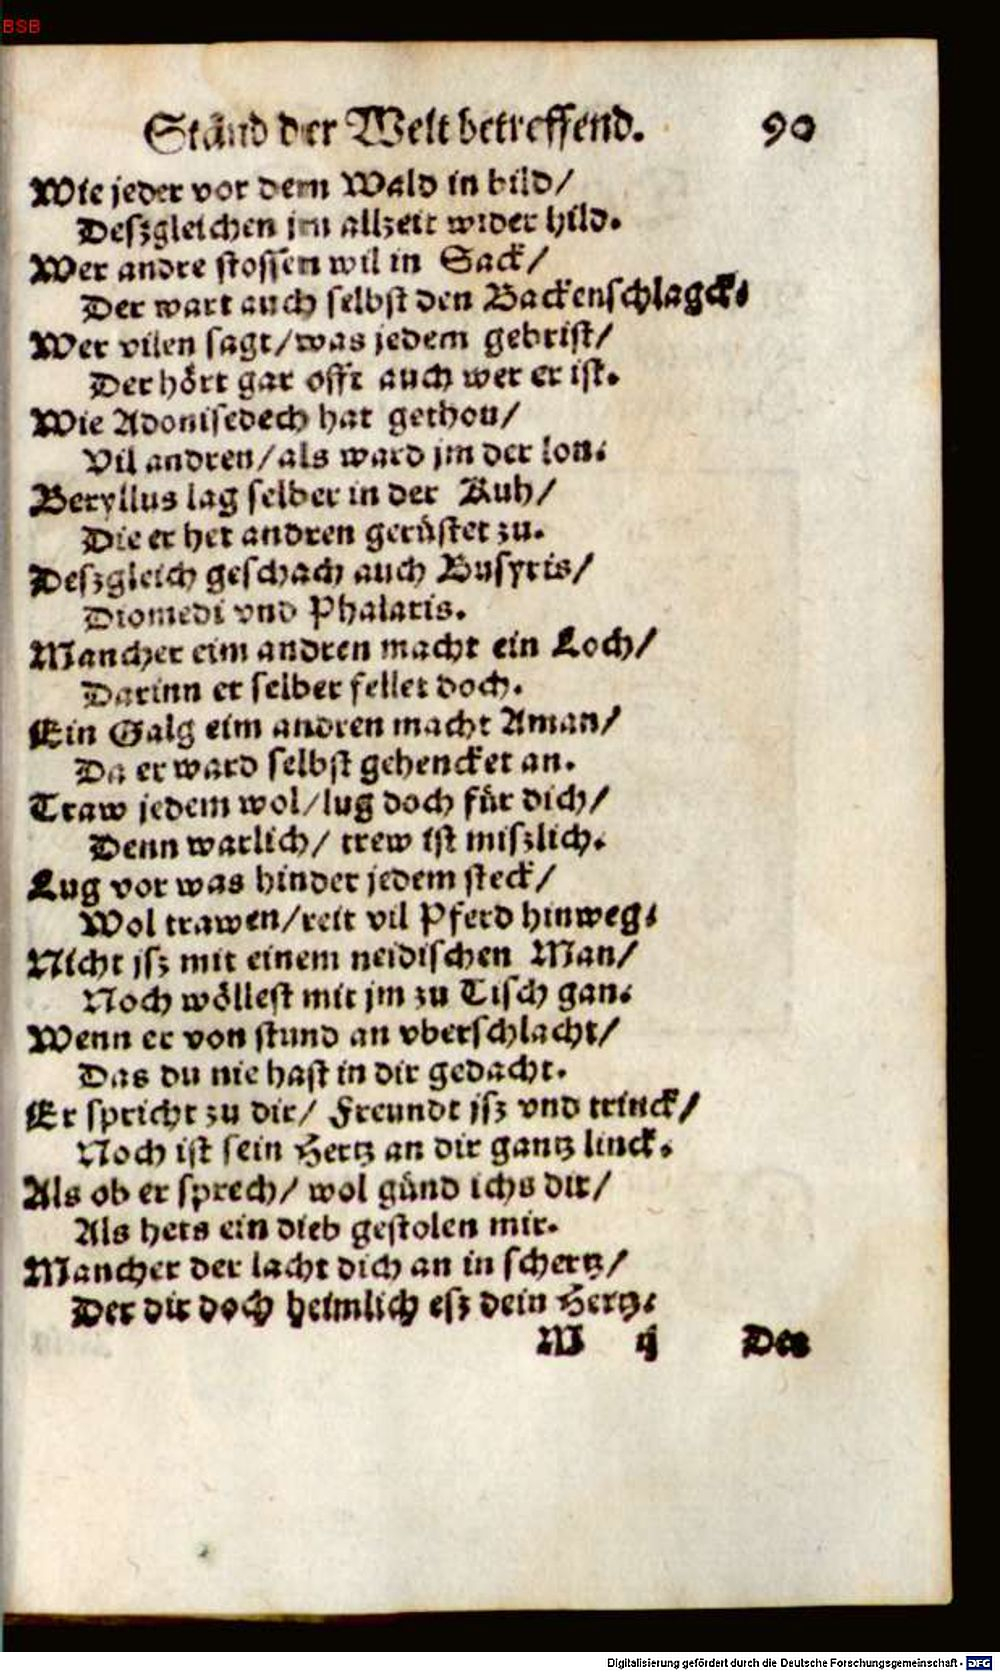 BSB
Ständ der Welt betreffend. 90
Wie jeder vor dem Wald in bild/
Deſzgleichen jm allzeit wider hild.
Wer andre ſtoſſen wil in Sack/
Der wart auch ſelbſt den Backenſchlagck.
Wer vilen ſagt/was jedem gebriſt/
Der hört gar offt auch wer er iſt.
Wie Adoniſedech hat gethon/
Vil andren/als ward jm der lon.
Beryllus lag ſelber in der Kuh/
Die er het andren gerüſtet zu.
Deſzgleich geſchach auch Buſyris/
Diomedi vnd Phalaris.
Mancher eim andren macht ein Loch/
Darinn er ſelber fellet doch.
Ein Galg eim andren macht Aman/
Da er ward ſelbſt gehencket an.
Traw jedem wol/lug doch für dich/
Denn warlich/ trew iſt miſzlich.
Lug vor was hinder jedem ſteck/
Wol trawen/reit vil Pferd hinweg.
Nicht jſz mit einem neidiſchen Man/
Noch wölleſt mit jm zu Tiſch gan.
Wenn er von ſtund an vberſchlacht/
Das du nie haſt in dir gedacht.
Er ſpricht zu dir/ Freundt jſz vnd trinck/
Noch iſt ſein Hertz an dir gantz linck.
Als ob er ſprech/ wol günd ichs dir/
Als hets ein dieb geſtolen mir.
Mancher der lacht dich an in ſchertz/
Der dir doch heimlich eſz dein Hertz.
M ij Der
Digitalisierung gefördert durch die Deutsche Forschungsgemeinschaft - DFG